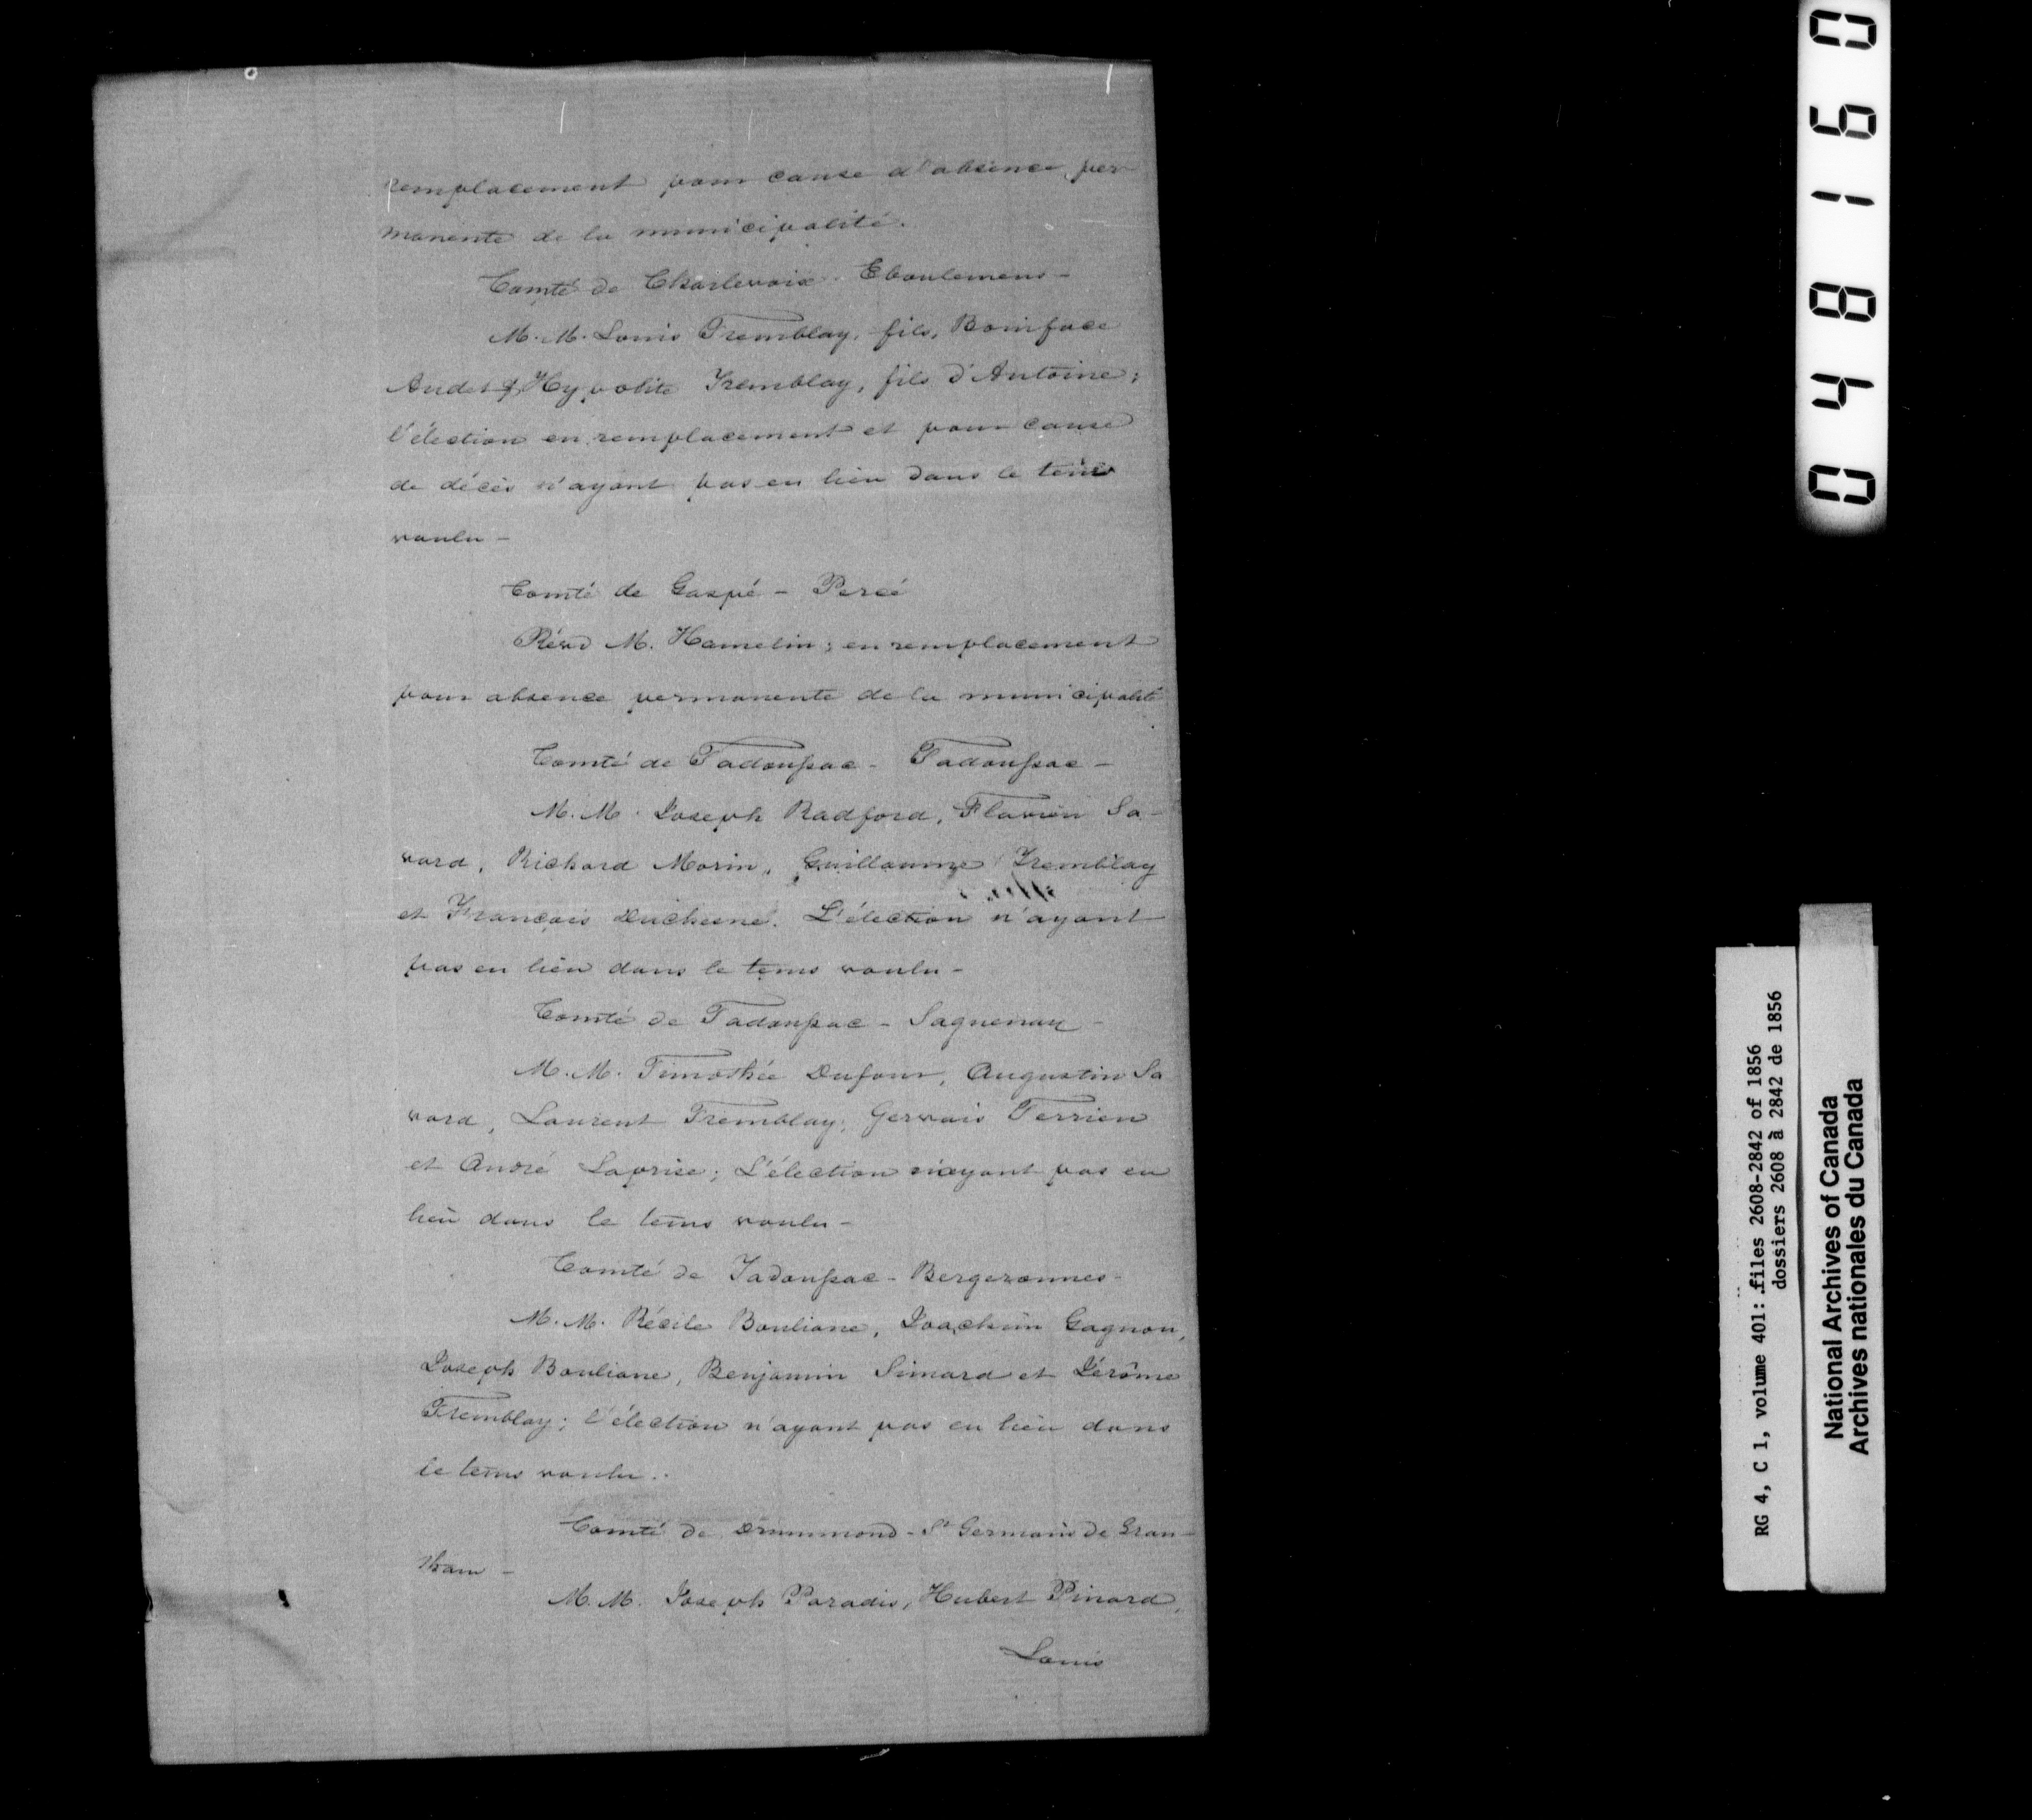 remplacement pour cause d'absence per
manente de la municipalité.
Comté de Charlevoix. Eboulemens -
M. M. Louis Tremblay, fils, Boniface
Audet & Hypolite Tremblay, fils d'Antoine;
l'élection en remplacement et pour cause
de décès n'ayant pas eu lieu dans le tems
voulu -
Comté de Gaspé - Percé
Révd M. Hamelin; en remplacement
pour absence permanente de la municipalité
Comté de Tadoussac - Tadoussac -
M. M. Joseph Radford, Flavien Sa-
vard, Richard Morin, Guillaume Tremblay
et François Duchesne. L'élection n'ayant
pas eu lieu dans le tems voulu -
Comté de Tadoussac - Saguenay -
M. M. Timothée Dufour, Augustin Sa
vard, Laurent Tremblay, Gervais Terrien
et André Laprise; L'élection n'ayant pas eu
lieu dans le tems voulu -
Comté de Tadoussac - Bergeronnes -
M. M. Bouliane, Joachim Gagnon,
Joseph Bouliane, Benjamin Simard et Jérôme
Tremblay; l'élection n'ayant pas eu lieu dans
le tems voulu..
Comté de Drummond - St Germain de Gran-
tham -
M. M. Joseph Paradis, Hubert Pinard,
Louis
048160
RG 4, C 1, volume 401: files 2608-2842 of 1856
dossiers 2608 à 2842 de 1856
National Archives of Canada
Archives nationales du Canada